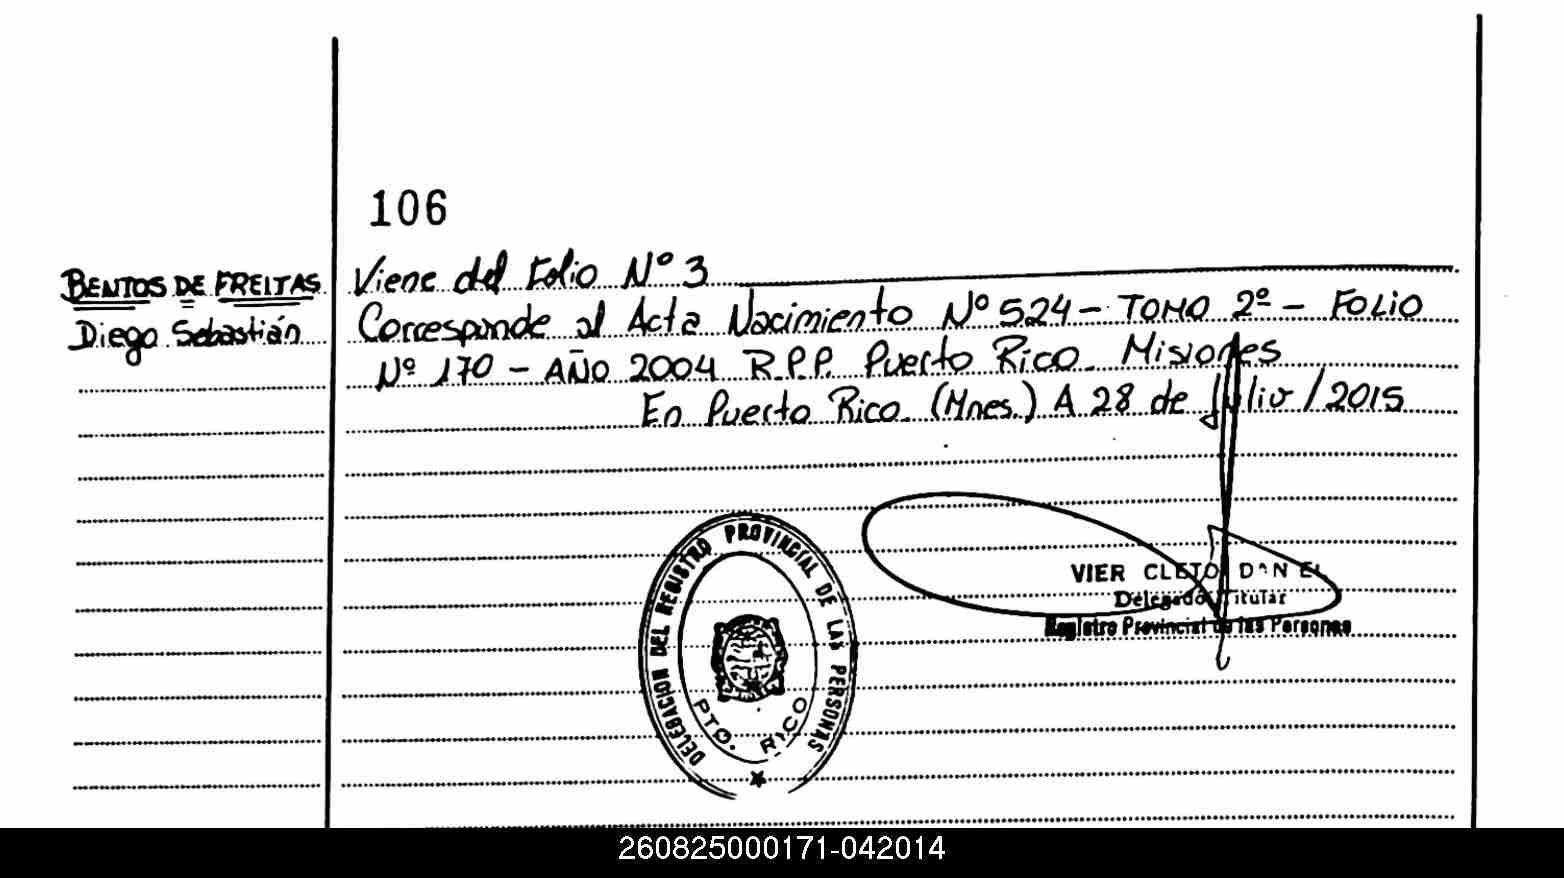 106
BENTOS DE FREITAS
Diego Sebastián
Viene del Folio Nº 3
Corresponde al Acta Nacimiento Nº 524 - TOMO 2º - FOLIO
Nº 170 - AÑO 2004 R.P.P. Puerto Rico. Misiones
En Puerto Rico. (Mnes.) A 28 de Julio / 2015
DELEGACION DEL REGISTRO PROVINCIAL DE LAS PERSONAS
PTO. RICO
VIER CLETO DANIEL
Delegado Titular
Registro Provincial de las Personas
260825000171-042014